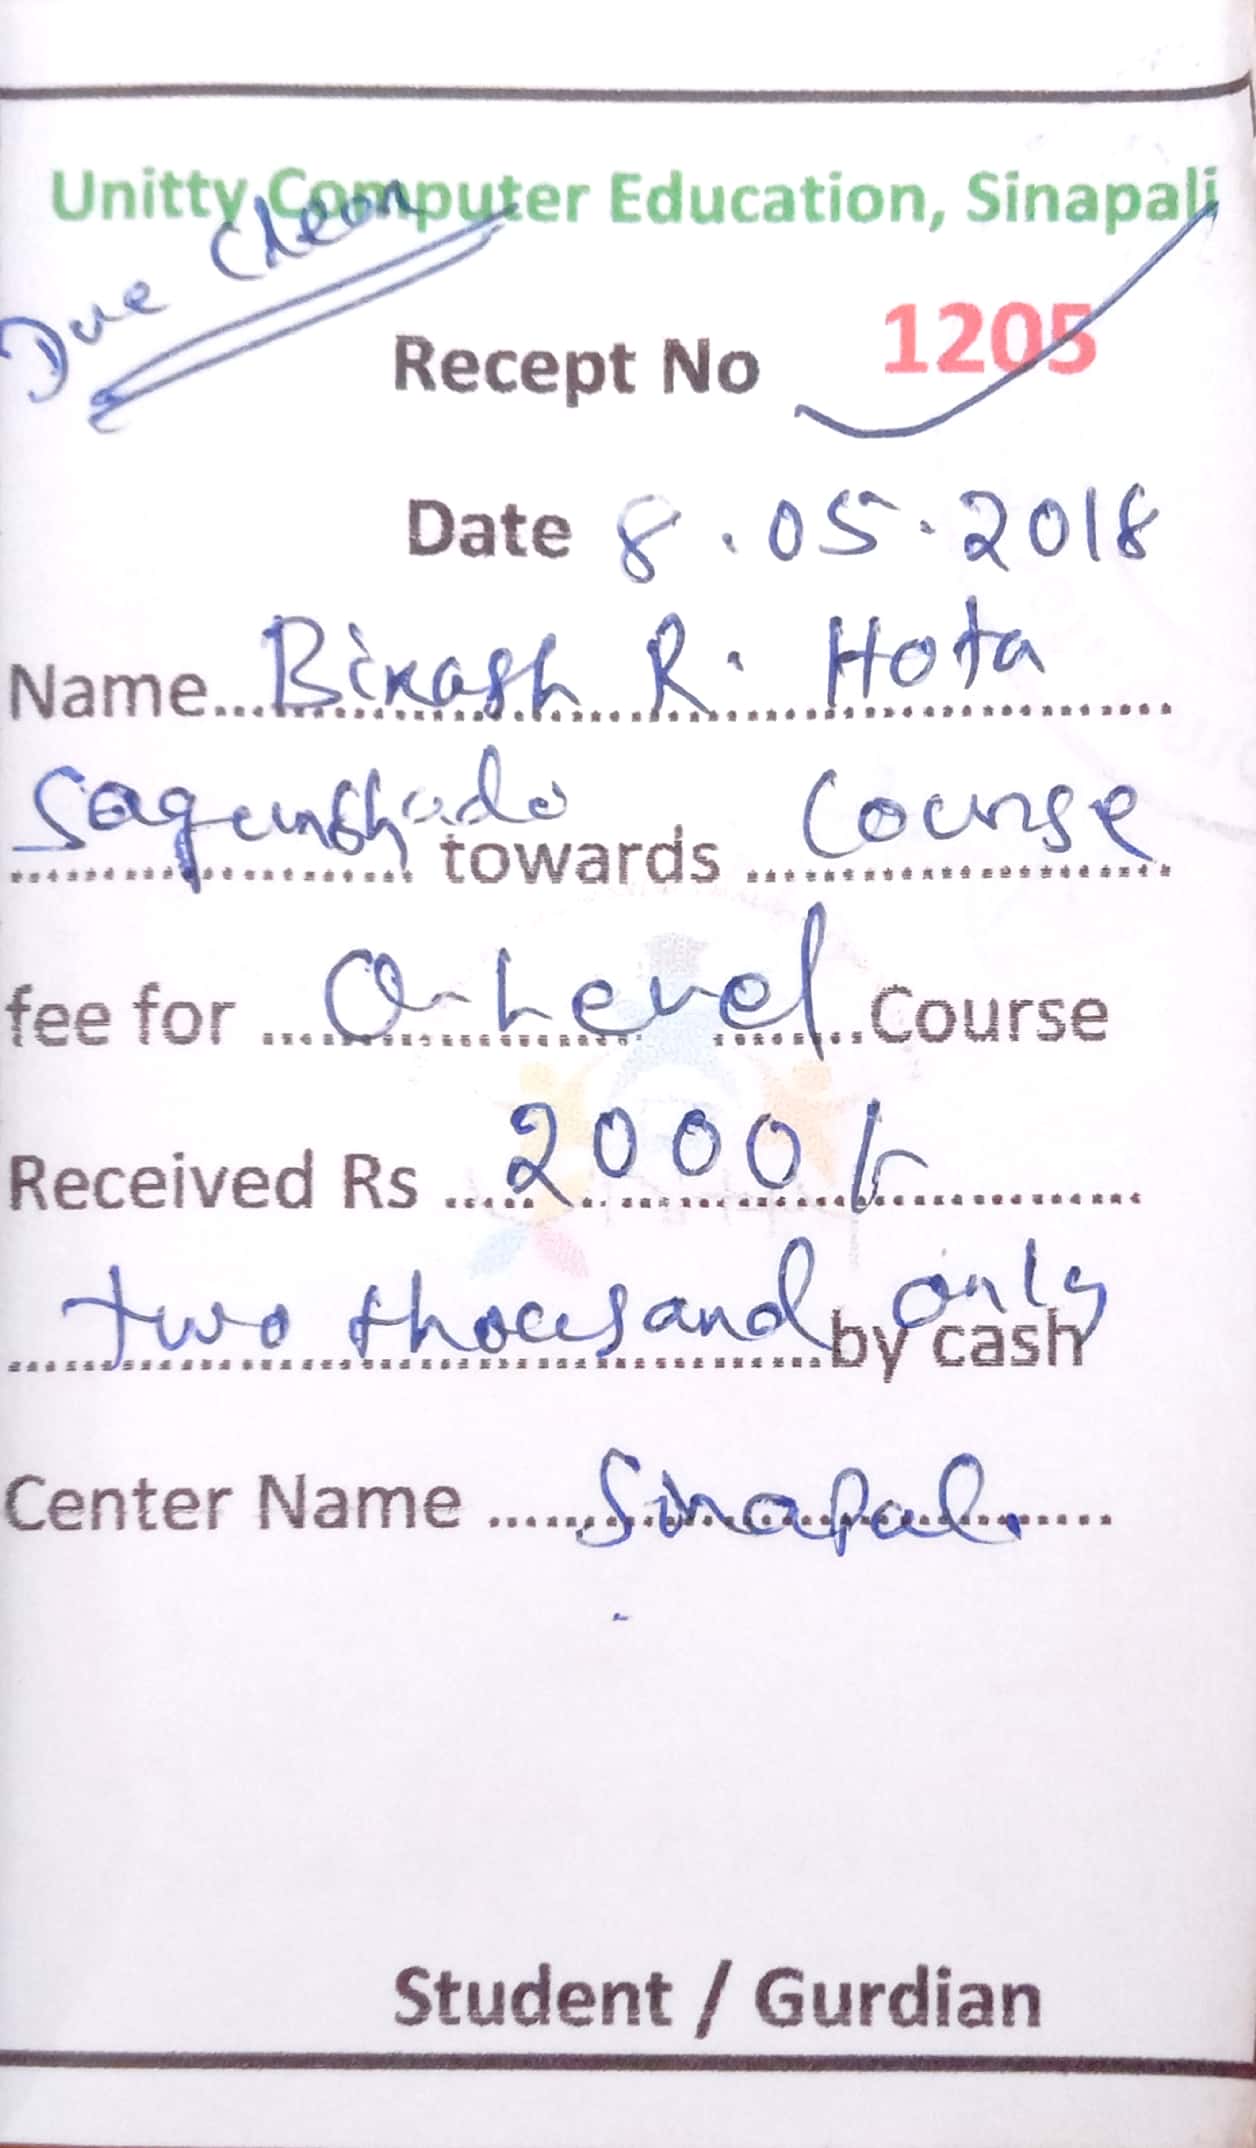 Unitty Computer Education, Sinapali
Due Clear
Recept No 1205
Date 8.05.2018
Name Bikash R. Hota
towards Course
fee for O-Level Course
Received Rs 2000/-
two thousand only by cash
Center Name Sinapali
Student / Gurdian